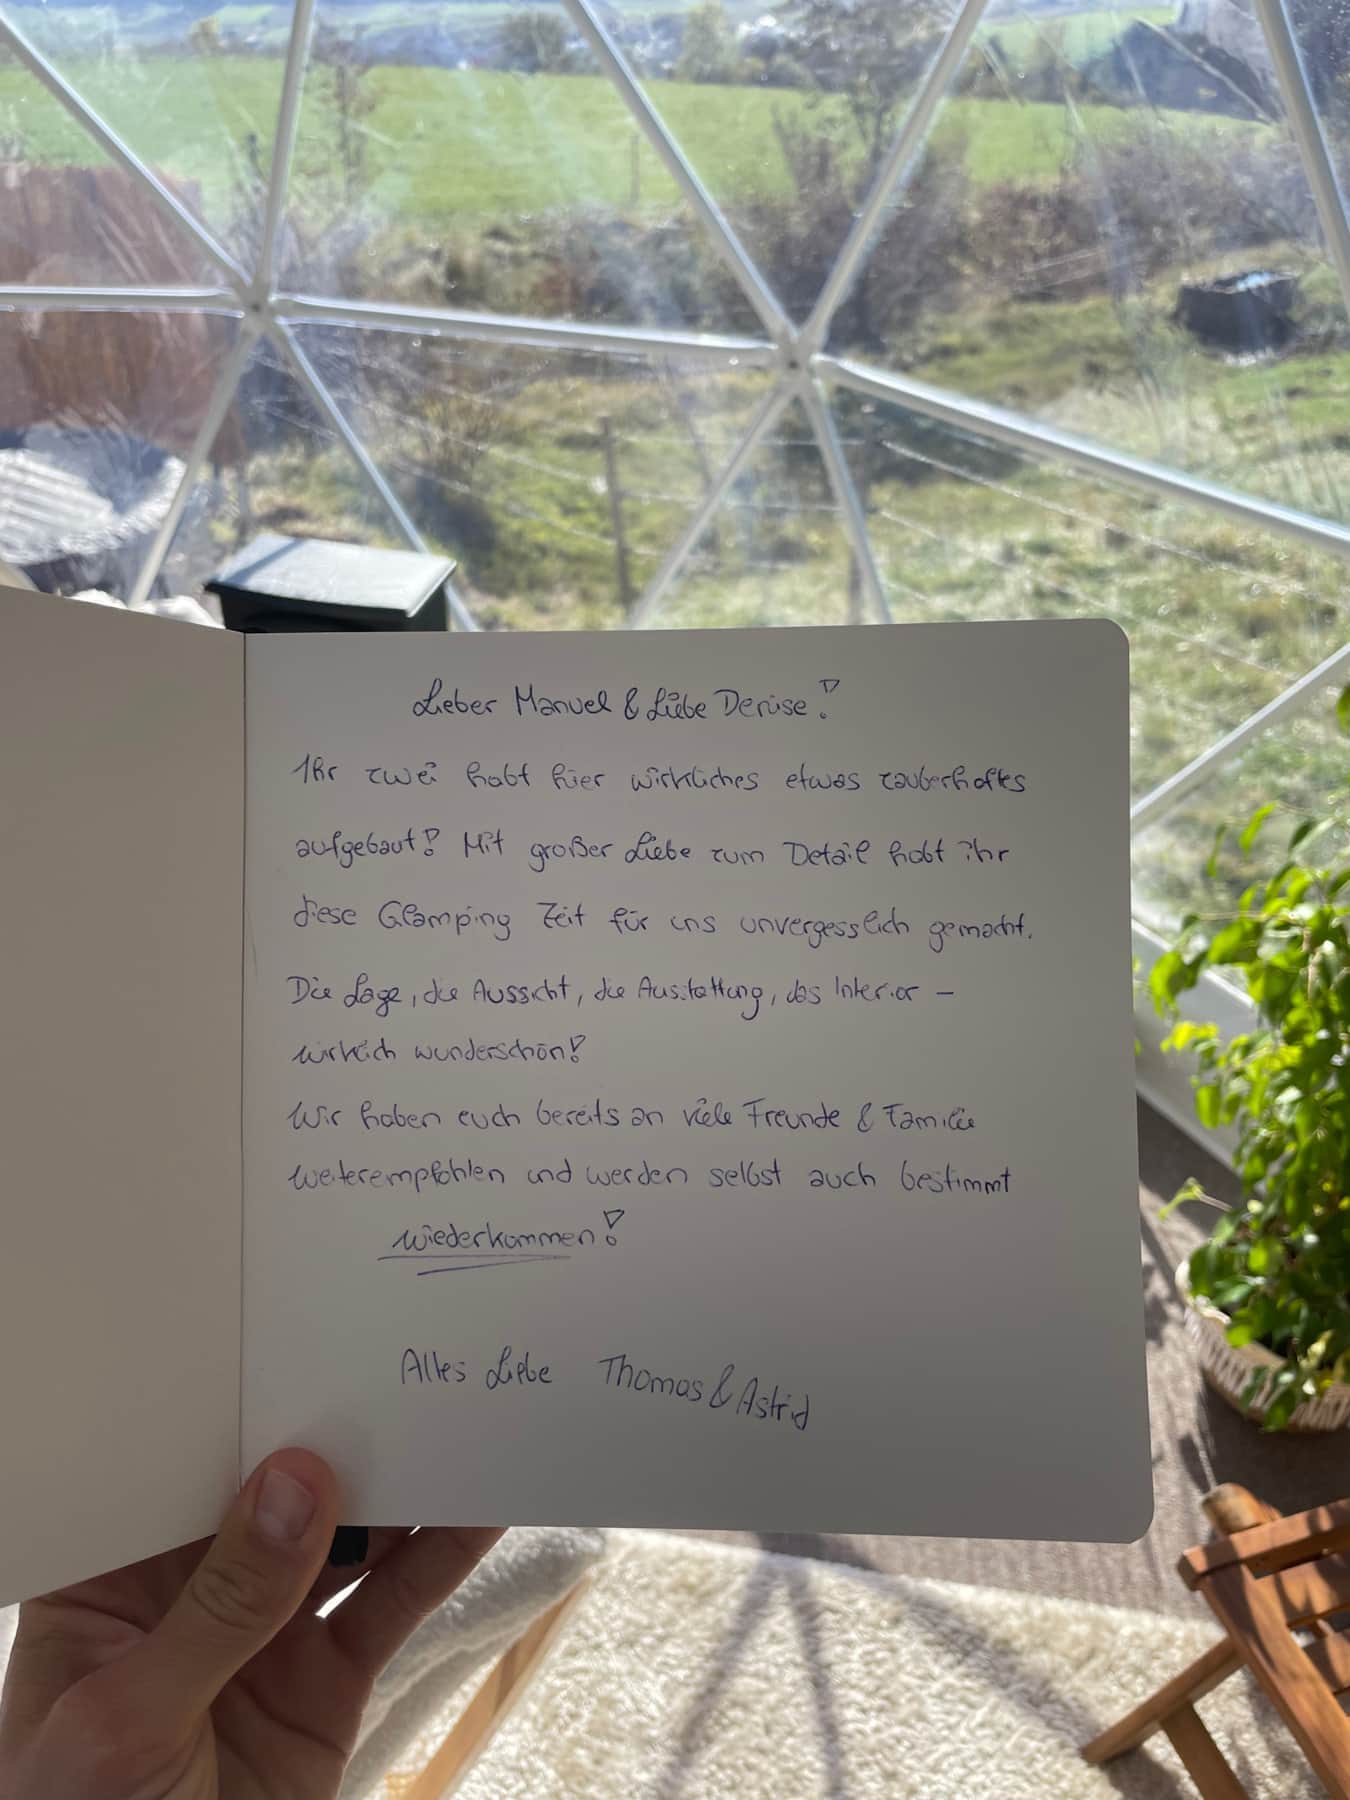 Lieber Manuel & Liebe Denise!
Ihr zwei habt hier wirkliches etwas zauberhaftes
aufgebaut! Mit großer Liebe zum Detail habt ihr
diese Glamping Zeit für uns unvergesslich gemacht.
Die Lage, die Aussicht, die Ausstattung, das Interior –
wirklich wunderschön!
Wir haben euch bereits an viele Freunde & Familie
weiterempfohlen und werden selbst auch bestimmt
wiederkommen!
Alles Liebe Thomas & Astrid